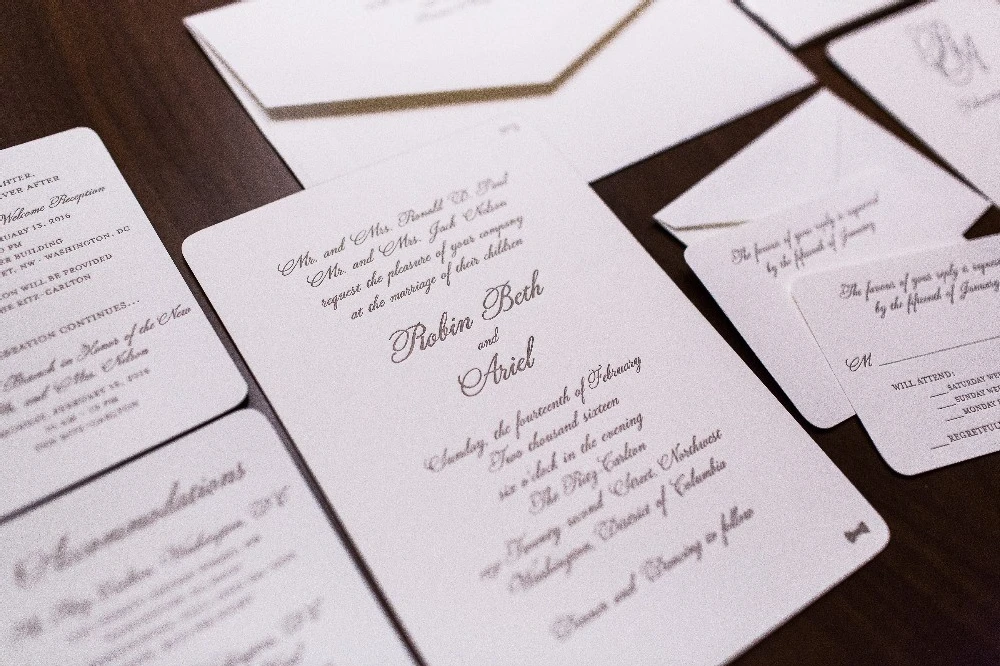 Mr. and Mrs. Ronald D. Paul
Mr. and Mrs. Jack Nelson
request the pleasure of your company
at the marriage of their children
Robin Beth
and
Ariel
Sunday, the fourteenth of February
Two thousand sixteen
six o'clock in the evening
The Ritz Carlton
Twenty second Street, Northwest
Washington, District of Columbia
Dinner and Dancing to follow
VER AFTER
Welcome Reception
RUARY 13, 2016
PM
BUILDING
ET, NW - WASHINGTON, DC
ON WILL BE PROVIDED
HE RITZ-CARLTON
EBRATION CONTINUES...
Brunch in Honor of the New
and Mrs. Nelson
MONDAY, FEBRUARY 15, 2016
THE RITZ-CARLTON
Accommodations
Washington, DC
The favour of your reply is requested
by the fifteenth of January
The favour of your reply is reques
by the fifteenth of January
M
WILL ATTEND:
SATURDAY WE
SUNDAY WE
MONDAY
REGRETFUL